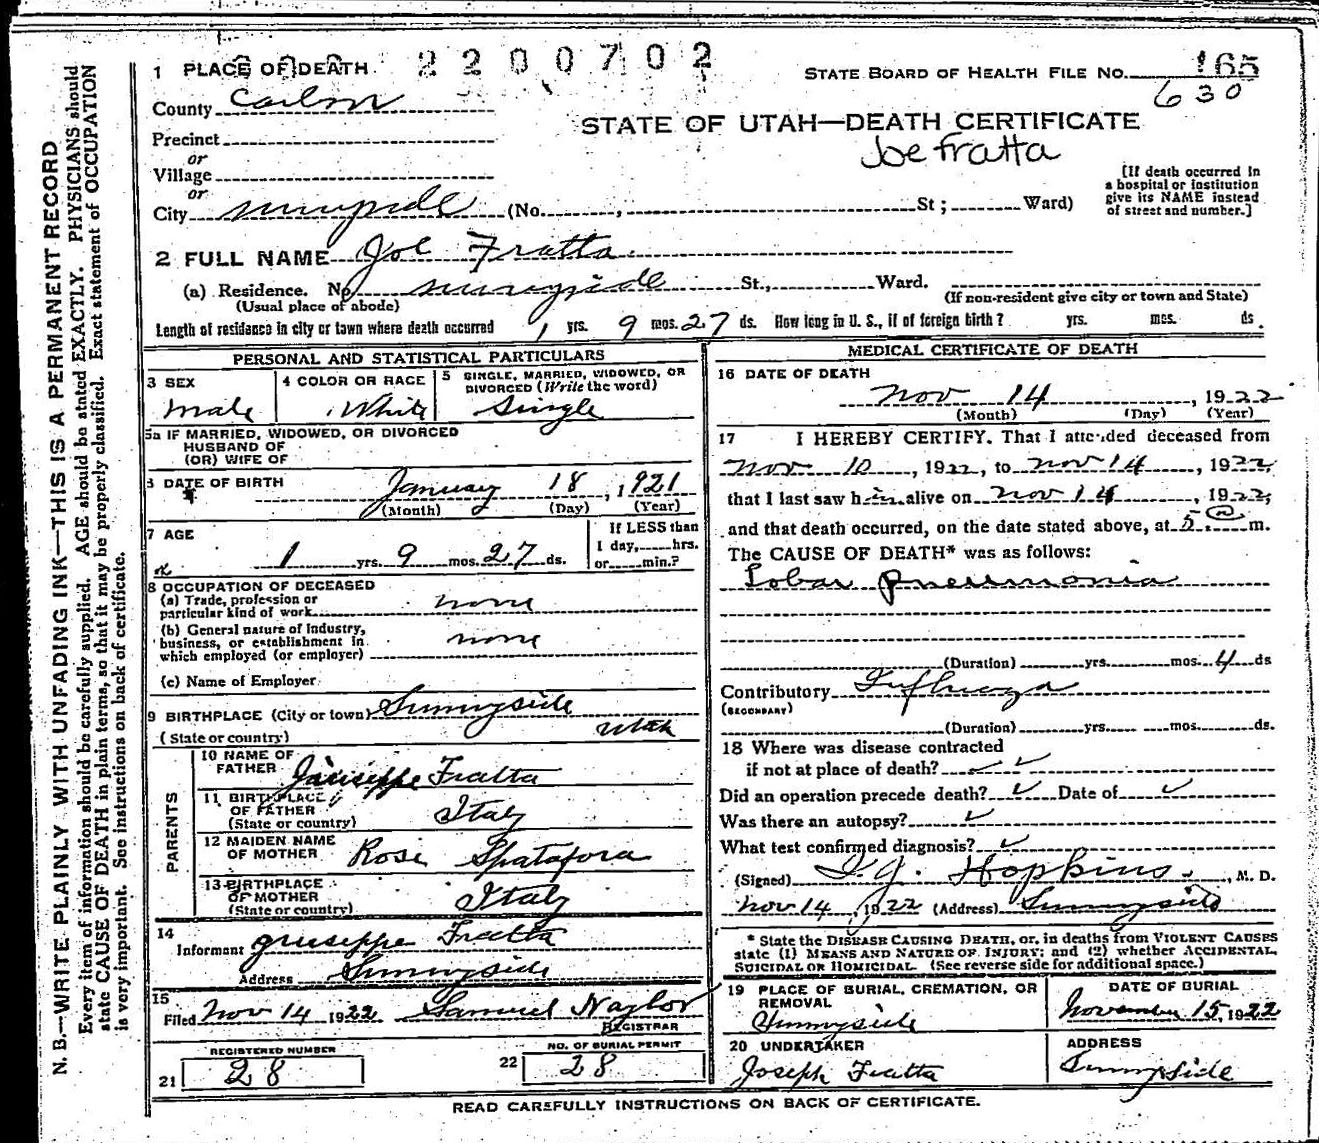 N. B.—WRITE PLAINLY WITH UNFADING INK—THIS IS A PERMANENT RECORD
Every item of information should be carefully supplied. AGE should be stated EXACTLY. PHYSICIANS should
state CAUSE OF DEATH in plain terms, so that it may be properly classified. Exact statement of OCCUPATION
is very important. See instructions on back of certificate.
1 PLACE OF DEATH 2200702
STATE BOARD OF HEALTH FILE NO. 165
630
County Carbon
STATE OF UTAH—DEATH CERTIFICATE
Joe Fratta
Precinct
or
Village
or
City Sunnyside (No. , St; Ward)
[If death occurred in
a hospital or institution
give its NAME instead
of street and number.]
2 FULL NAME Joe Fratta
(a) Residence. No. Sunnyside St., Ward.
(Usual place of abode) (If non-resident give city or town and State)
Length of residence in city or town where death occurred 1 yrs. 9 mos. 27 ds. How long in U. S., if of foreign birth? yrs. mos. ds.
PERSONAL AND STATISTICAL PARTICULARS
3 SEX
Male
4 COLOR OR RACE
White
5 SINGLE, MARRIED, WIDOWED, OR
DIVORCED (Write the word)
Single
5a IF MARRIED, WIDOWED, OR DIVORCED
HUSBAND OF
(OR) WIFE OF
6 DATE OF BIRTH
January 18, 1921
(Month) (Day) (Year)
7 AGE
1 yrs. 9 mos. 27 ds.
If LESS than
1 day, hrs.
or min.?
8 OCCUPATION OF DECEASED
(a) Trade, profession or
particular kind of work none
(b) General nature of Industry,
business, or establishment in
which employed (or employer) none
(c) Name of Employer
9 BIRTHPLACE (City or town) Sunnyside
(State or country) Utah
PARENTS
10 NAME OF
FATHER Giuseppe Fratta
11 BIRTHPLACE
OF FATHER
(State or country) Italy
12 MAIDEN NAME
OF MOTHER Rose Spatafora
13 BIRTHPLACE
OF MOTHER
(State or country) Italy
14
Informant Giuseppe Fratta
Address Sunnyside
15
Filed Nov 14 1922 Samuel Naylor
REGISTRAR
REGISTERED NUMBER
21 28
NO. OF BURIAL PERMIT
22 28
MEDICAL CERTIFICATE OF DEATH
16 DATE OF DEATH
Nov 14, 1922
(Month) (Day) (Year)
17 I HEREBY CERTIFY. That I attended deceased from
Nov 10, 1922, to Nov 14, 1922,
that I last saw him alive on Nov 14, 1922,
and that death occurred, on the date stated above, at 5 a m.
The CAUSE OF DEATH* was as follows:
Lobar pneumonia
(Duration) yrs. mos. 4 ds
Contributory Influenza
(SECONDARY)
(Duration) yrs. mos. ds.
18 Where was disease contracted
if not at place of death? ✓ ✓
Did an operation precede death? ✓ Date of ✓
Was there an autopsy? ✓
What test confirmed diagnosis? ✓
(Signed) Hopkins, M. D.
Nov 14, 1922 (Address) Sunnyside
* State the DISEASE CAUSING DEATH, or, in deaths from VIOLENT CAUSES
state (1) MEANS AND NATURE OF INJURY; and (2) whether ACCIDENTAL,
SUICIDAL OR HOMICIDAL. (See reverse side for additional space.)
19 PLACE OF BURIAL, CREMATION, OR
REMOVAL
Sunnyside
DATE OF BURIAL
November 15, 1922
20 UNDERTAKER
Joseph Fratta
ADDRESS
Sunnyside
READ CAREFULLY INSTRUCTIONS ON BACK OF CERTIFICATE.